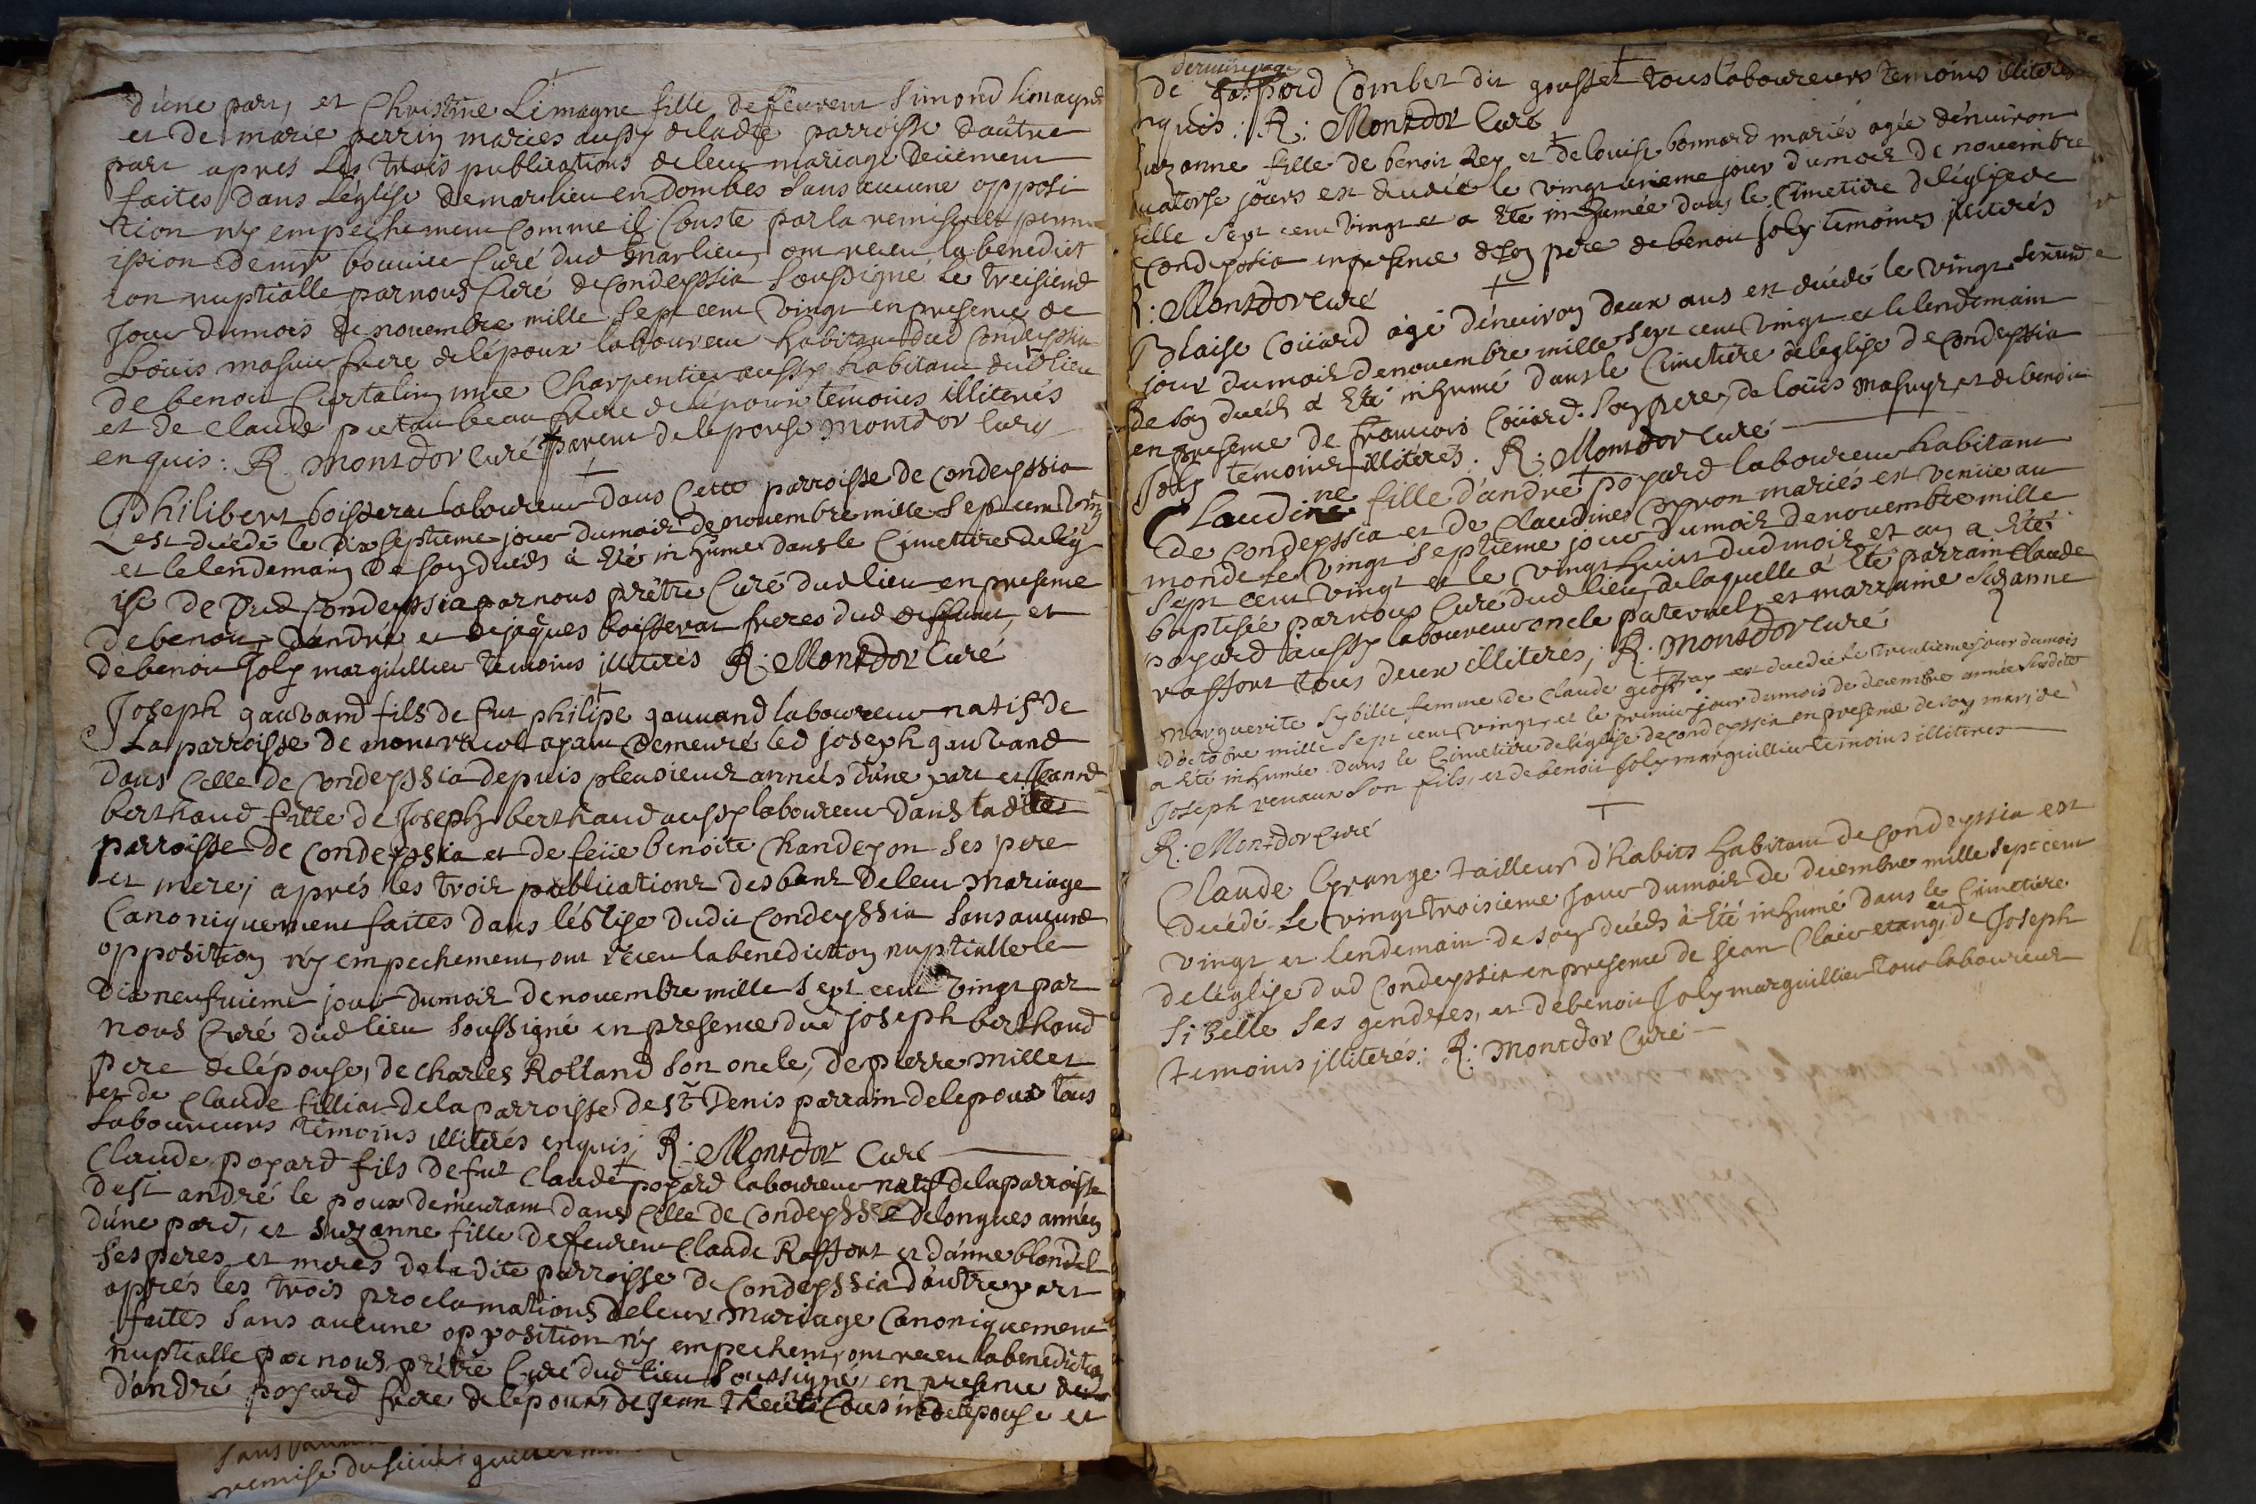 d'une part, et Christine Limagne fille de feurent Simond Limagne
et de marie perrin mariés aussy de ladte parroisse d'autre
part apres les trois publications de leur mariage deüement
faites dans l'église de marlieu en Dombes sans aucune opposi
tion n'y empechement comme il conste par la remise et perm
ission de mr bouvier Curé dud marlieu, ont receu la benedict
ion nuptialle par nous Curé de Condeyssia soussigné le treisieme
jour du mois de novembre mille sept cent vingt en presence de
Loüis masuir frere de l'époux laboureur habitant dud Condeyssia
de benoit Curtalin mtre Charpentier aussy habitant dud lieu
et de Claude pretau beau frere de l'époux temoins illiterés
enquis: R. montdor Curé parent de l'epouse montdor Curé
Philibert boisserat laboureur dans Cette parroisse de Condeyssia
est décédé le dix septieme jour du mois de novembre mille sept cent vingt
et le lendemain de son décéds a été inhumé dans le Cimetiere de lég
ise de dud Condeyssia par nous prêtre Curé dud lieu en presence
de benoit, d'andré et de jaques boisserat freres dud deffunt, et
de benoit joly marguillier temoins illiterés R: Montdor Curé
Joseph gauvand fils de fut philipe gauvand laboureur natif de
La parroisse de montracol ayant demeuré led joseph gauvand
dans Celle de Condeyssia depuis pleusieur annéés d'une part et Jeanne
berthaud fille de Joseph berthaud aussy laboureur dans ladite
parroisse de Condeyssia et de feüe benoite Chandeyon ses pere
et mere; aprés les trois publications des bans de leur mariage
Canoniquement faites dans l'église dudit Condeyssia sans aucune
opposition n'y empechement, ont receu la benediction nuptialle le
dix neufvieme jour du mois de novembre mille sept cent vingt par
nous Curé dud lieu soussigné en presence dud joseph berthaud
pere de l'épouse, de Charles Rolland son oncle, de pierre millet
et de Claude filliat de la parroisse de St Denis parrain de lepoux tous
laboureurs temoins illiterés enquis; R: Montdor Curé
Claude poyard fils de fut Claude poyard laboureur natif de la parroisse
de st andré le poux demeurant dans Celle de Condeyssia de longues années
d'une part, et suzanne fille de feurent Claude Raffort et d'anne blondel
ses peres et meres de ladite parroisse de Condeyssia d'autre part
aprés les trois proclamations de leur mariage Canoniquement
faites sans aucune opposition n'y empechemt, ont receu la benediction
nuptialle par nous prêtre Curé dud lieu soussigné, en presence de
d'andré poyard frere de l'époux, de jean Cousin de l'epouse et
derniere page
de gaspard Combet dit gousset tous laboureurs temoins illiteres
nquis: R: Montdor Curé
uzanne fille de benoit Rey et de louise bonnard mariés agée d'environ
uatorse jours est décédée le vingt unieme jour du mois de novembre
ille sept cent vingt et a été inhumée dans le Cimetiere de léglise de
Condeyssia en presence de son pere de benoit joly temoins illiterés
R: Montdor Curé
Blaise Coüard agé d'environ deux ans est décédé le vingt second
jour du mois de novembre mille sept cent vingt et le lendemain
de son décéds a été inhumé dans le Cimetiere de leglise de Condeyssia
en presence de francois Coüard son pere, de loüis masuyr, et de benoit
Joly temoins illiterés: R: Montdor Curé
Claudine fille d'andré poyard laboureur habitant
de Condeyssia et de Claudine Coyron mariés est venüe au
monde le vingt septieme jour du mois de novembre mille
sept cent vingt et le vingt huict dud mois et an a été
baptisée par nous Curé dud lieu, de laquelle a été parrain Claude
poyard aussy laboureur oncle paternel, et marraine suzanne
raffort tous deux illiterés; R: Montdor Curé
Marguerite Sybille femme de Claude geoffray est décédée le trentieme jour du mois
d'octobre mille sept cent vingt, et le premier jour du mois de decembre année susdite
a été inhumée dans le Cimetiere de l'église de condeyssia en presence de son mari, de
Joseph renaux son fils, et de benoit joly marguillier temoins illiteres
R: Montdor Curé
Claude Grange tailleur d'habits habitant de Condeyssia est
décédé le vingt troisieme jour du mois de decembre mille sept cent
vingt, et lendemain de son décéds à été inhumé dans le Cimetiere
de l'église dud Condeyssia en presence de jean Clair etang, et de Joseph
Sibelle ses gendres, et de benoit Joly marguillier tous laboureur
temoins illiterés: R: Montdor Curé
remise du sieur